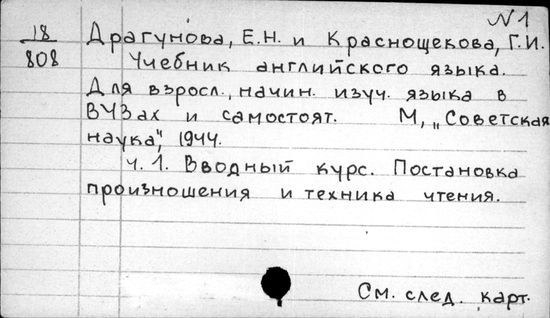 N 1
18 Драгунова, Е.Н. и Краснощекова, Г.И.
808 Учебник английского языка.
Для взросл., начин. изуч. языка в
ВУЗах и самостоят. М, „Советская
наука", 1944.
ч. 1. Вводный курс. Постановка
произношения и техника чтения.
См. след. карт.